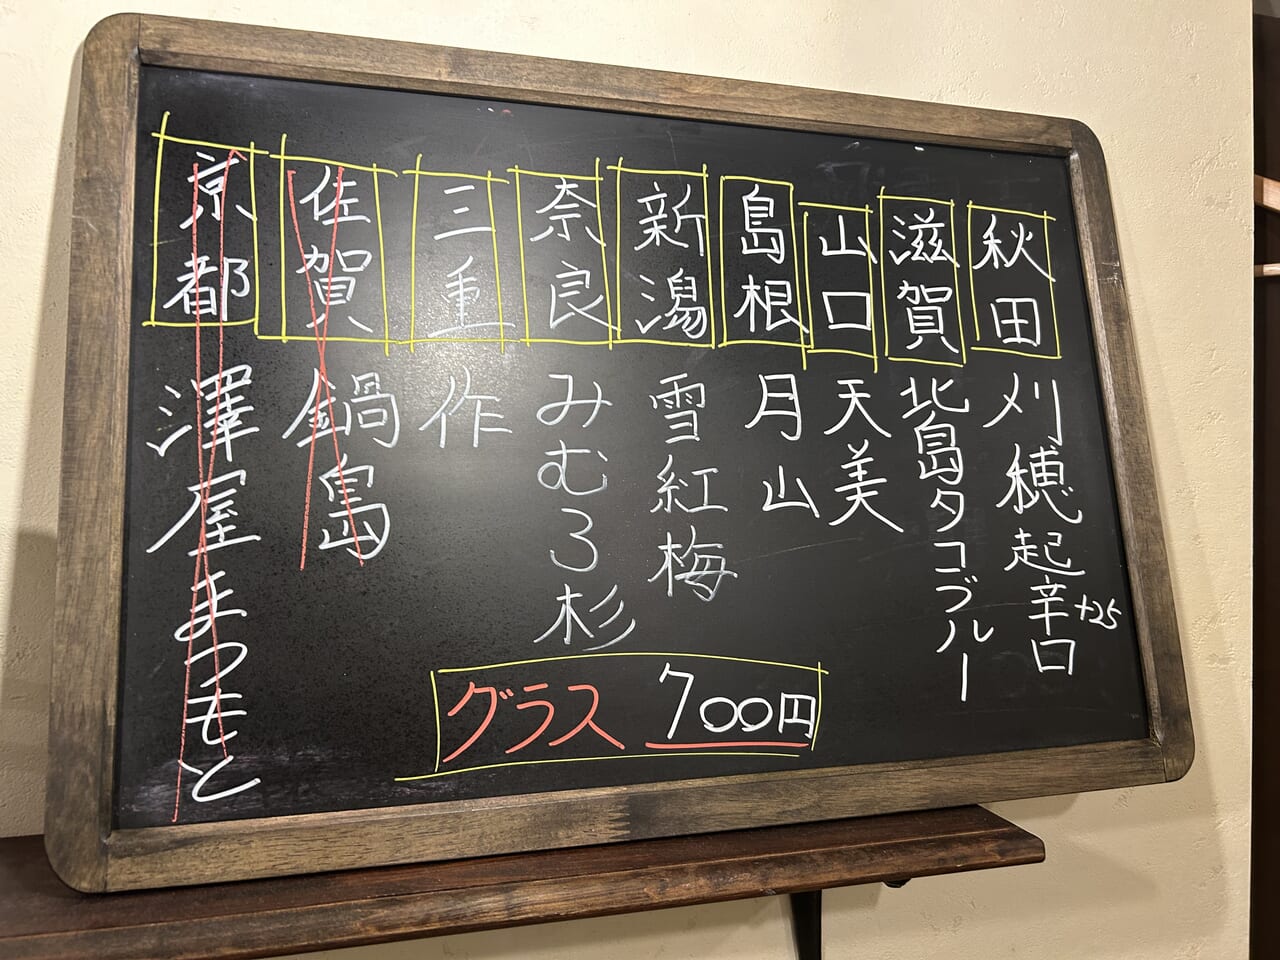 秋田 刈穂 超辛口 +25
滋賀 北島タコブルー
山口 天美
島根 月山
新潟 雪紅梅
奈良 みむろ杉
三重 作
佐賀 鍋島
京都 澤屋まつもと
グラス 700円